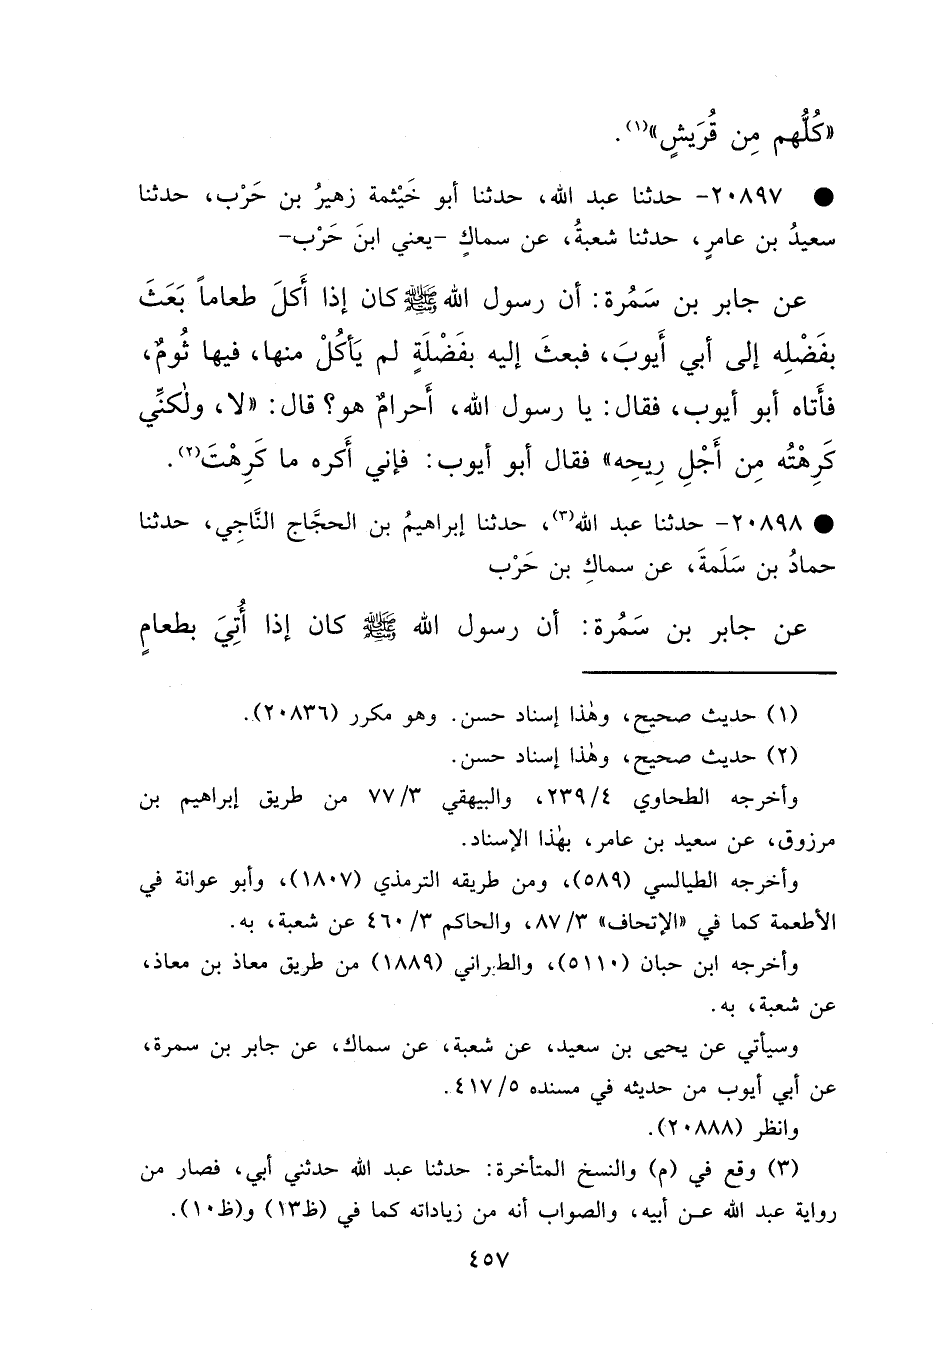 «كُلُّهم مِن قُرَيشٍ»(١).
● ٢٠٨٩٧- حدثنا عبد الله، حدثنا أبو خَيْثمة زهيرُ بن حَرْب، حدثنا
سعيدُ بن عامرٍ، حدثنا شعبةُ، عن سماكٍ -يعني ابنَ حَرْب-
عن جابر بن سَمُرة: أن رسول الله ﷺ كان إذا أَكلَ طعاماً بَعَثَ
بفَضْلِه إلى أبي أيوبَ، فبعثَ إليه بفَضْلَةٍ لم يَأكُلْ منها، فيها ثُومٌ،
فأَتاه أبو أيوب، فقال: يا رسول الله، أَحرامٌ هو؟ قال: «لا، ولٰكنِّي
كَرِهْتُه مِن أَجْلِ رِيحِه» فقال أبو أيوب: فإني أَكره ما كَرِهْتَ(٢).
● ٢٠٨٩٨- حدثنا عبد الله(٣)، حدثنا إبراهيمُ بن الحجَّاج النَّاجِي، حدثنا
حمادُ بن سَلَمةَ، عن سماكِ بن حَرْب
عن جابر بن سَمُرة: أن رسول الله ﷺ كان إذا أُتِيَ بطعامٍ
(١) حديث صحيح، وهٰذا إسناد حسن. وهو مكرر (٢٠٨٣٦).
(٢) حديث صحيح، وهٰذا إسناد حسن.
وأخرجه الطحاوي ٢٣٩/٤، والبيهقي ٧٧/٣ من طريق إبراهيم بن
مرزوق، عن سعيد بن عامر، بهٰذا الإسناد.
وأخرجه الطيالسي (٥٨٩)، ومن طريقه الترمذي (١٨٠٧)، وأبو عوانة في
الأطعمة كما في «الإتحاف» ٨٧/٣، والحاكم ٤٦٠/٣ عن شعبة، به.
وأخرجه ابن حبان (٥١١٠)، والطبراني (١٨٨٩) من طريق معاذ بن معاذ،
عن شعبة، به.
وسيأتي عن يحيى بن سعيد، عن شعبة، عن سماك، عن جابر بن سمرة،
عن أبي أيوب من حديثه في مسنده ٤١٧/٥.
وانظر (٢٠٨٨٨).
(٣) وقع في (م) والنسخ المتأخرة: حدثنا عبد الله حدثني أبي، فصار من
رواية عبد الله عن أبيه، والصواب أنه من زياداته كما في (ظ١٣) و(ظ١٠).
٤٥٧